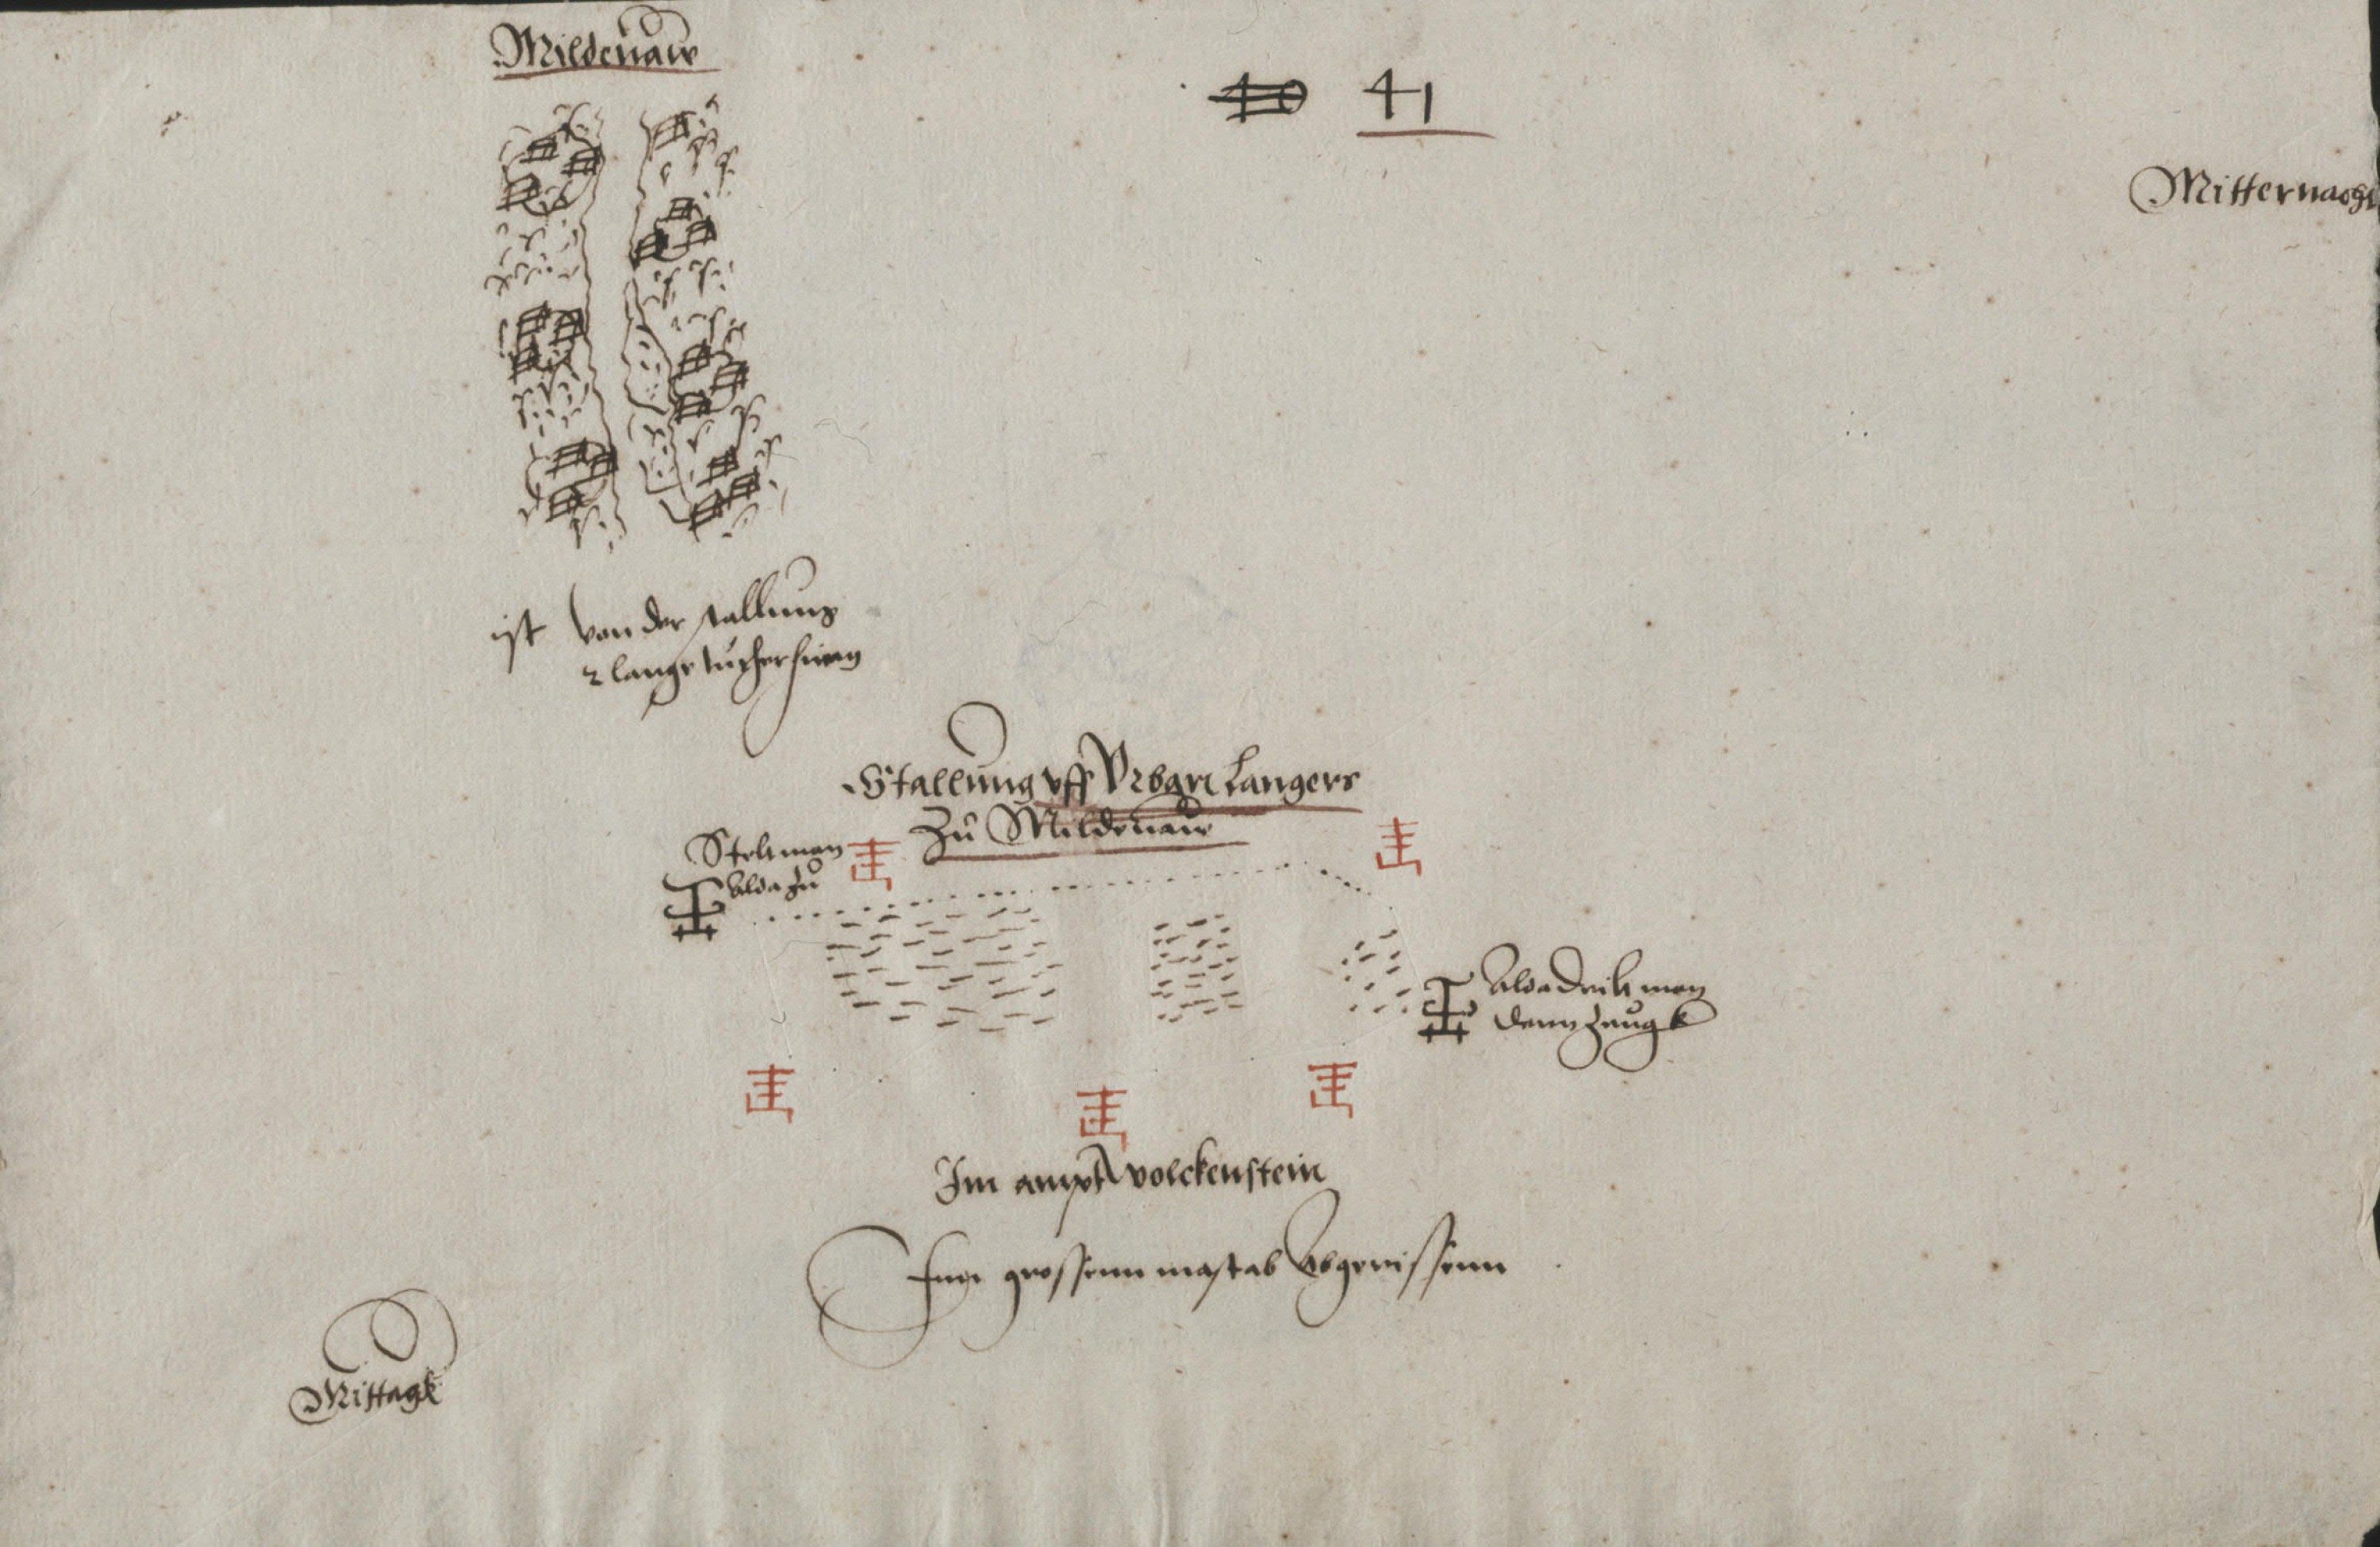 Mildenaw
40 41
Mitternacht
ist von der stallung
2 lange tucher hinan
Stallung vff Vrban Langers
Zu Mildenaw
Stelt man
alda zu
alda Drit man
denn zeugk
Im ampt Wolckenstein
Inn grossenn mastab Abgerissenn
Mittagk